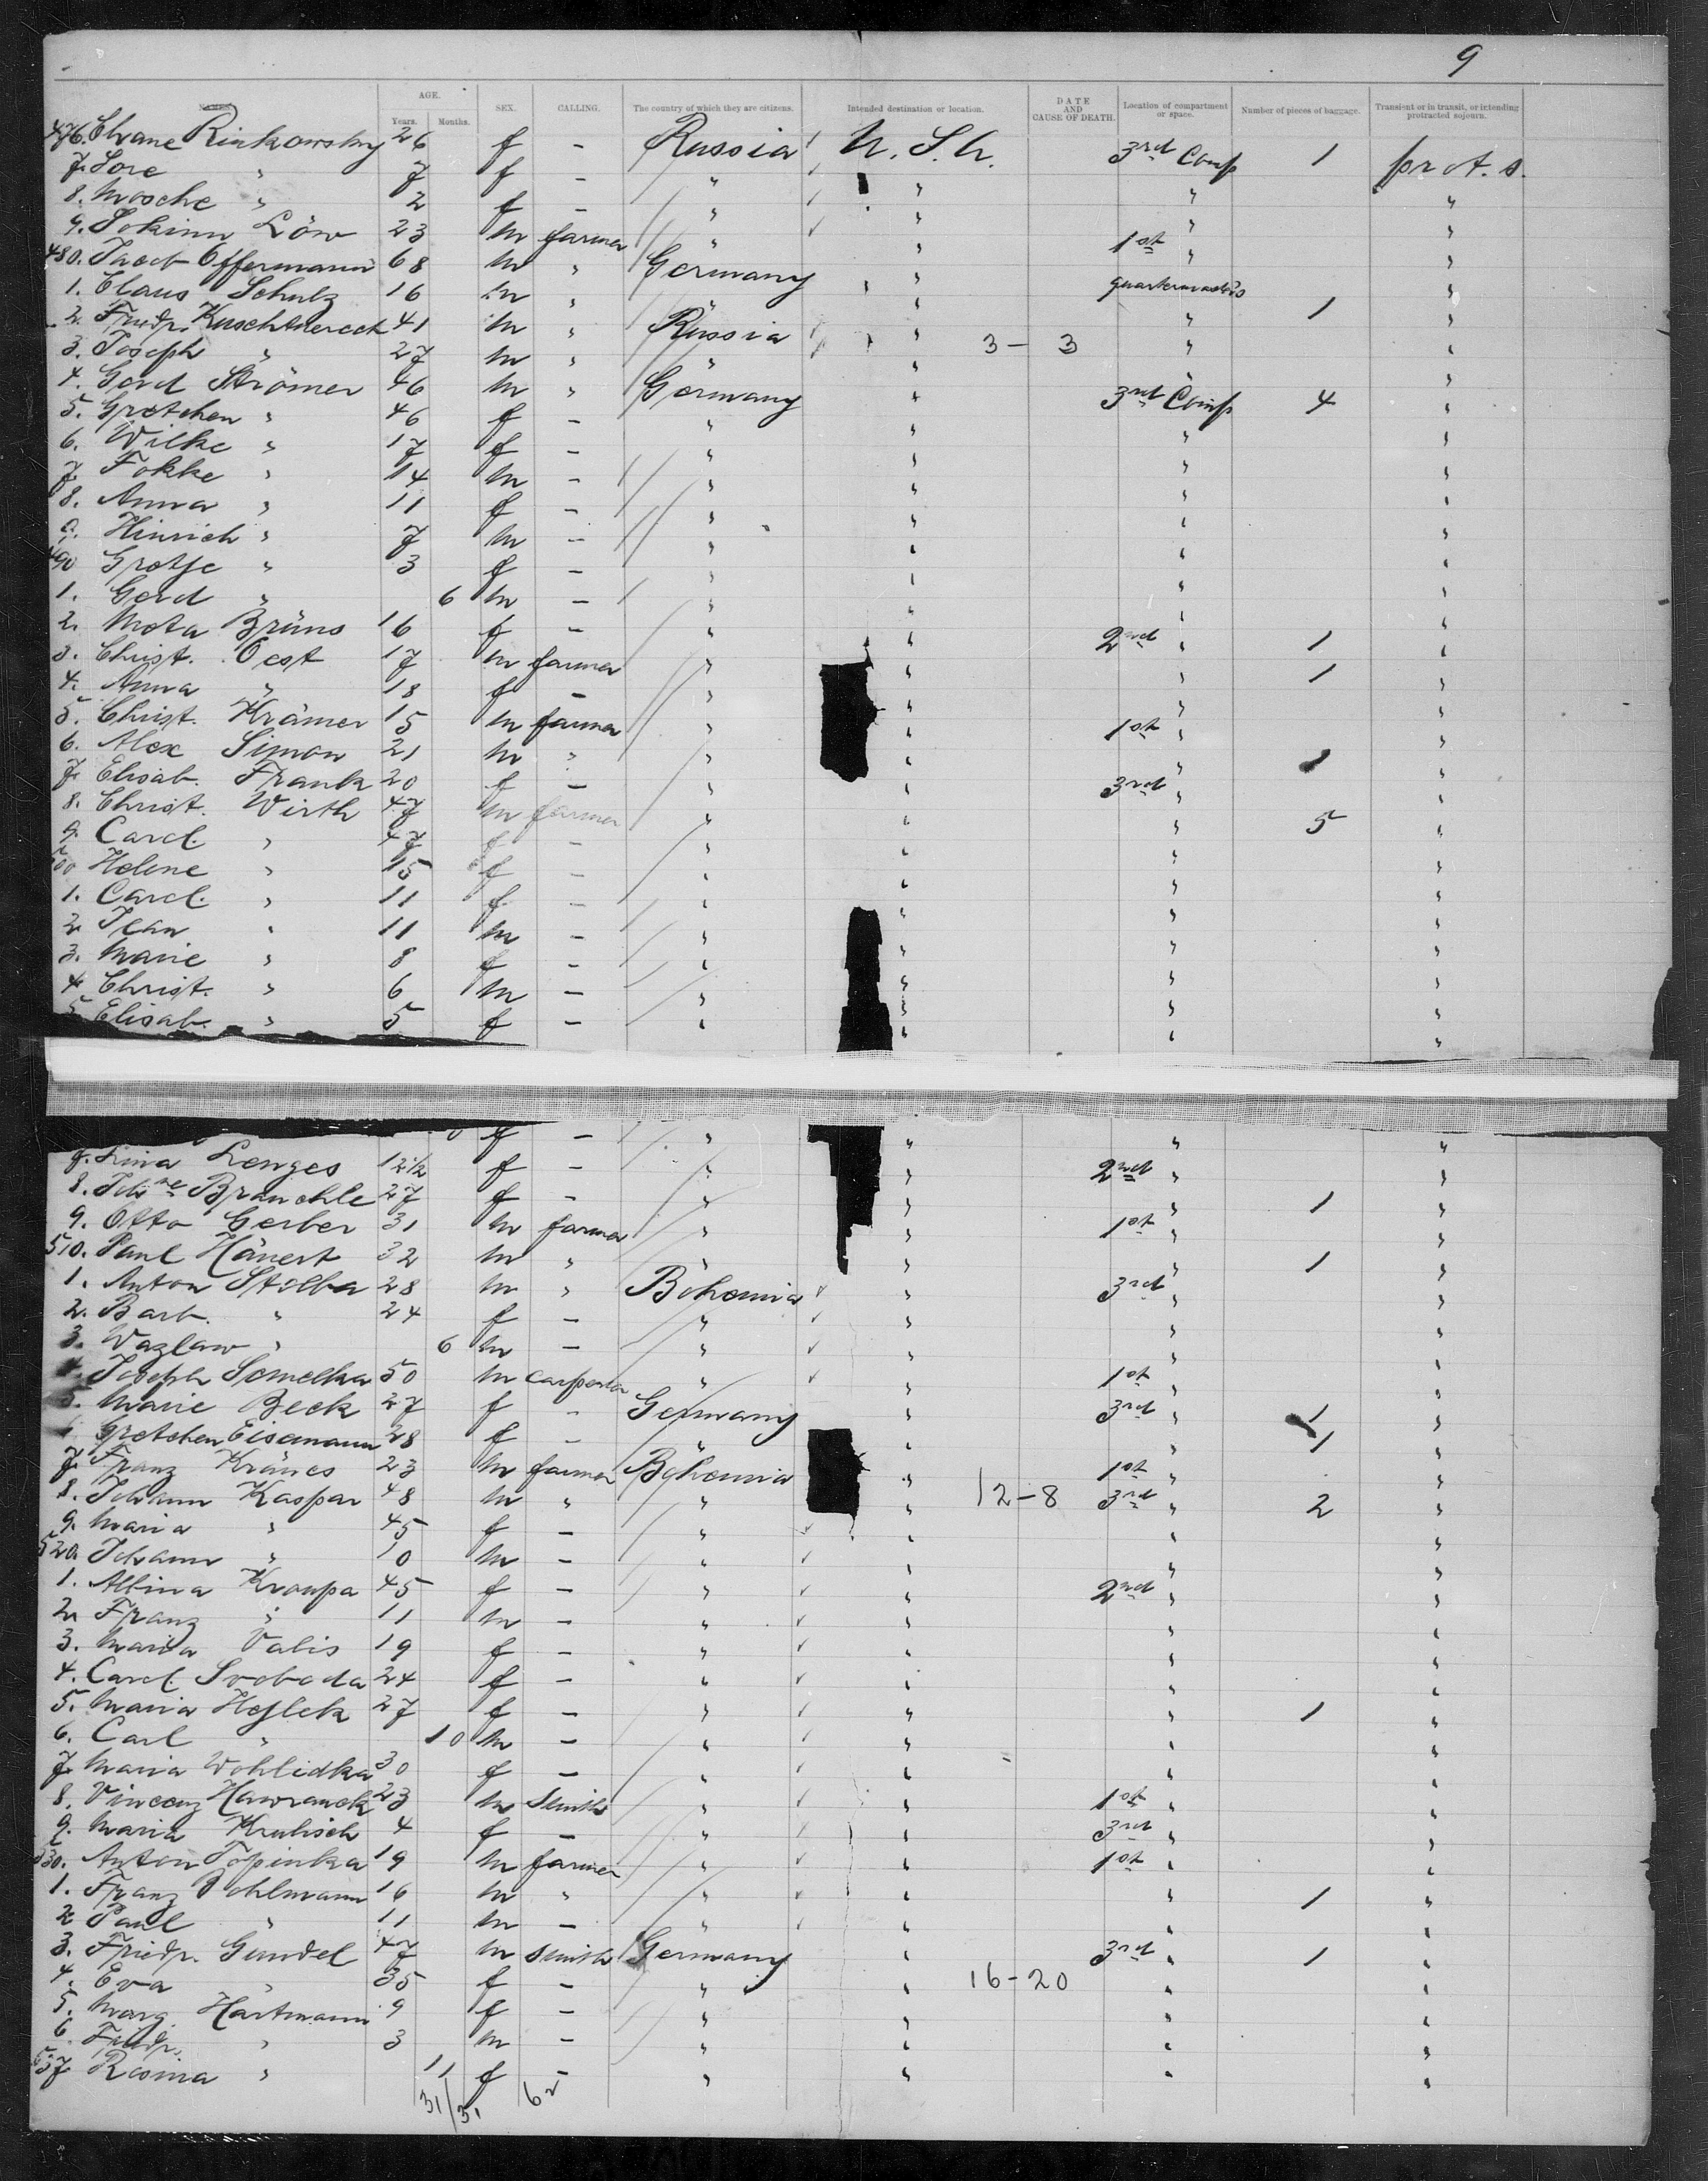 9
NAMES. AGE. Years. Months. SEX. CALLING. The country of which they are citizens. Intended destination or location. DATE AND CAUSE OF DEATH. Location of compartment or space. Number of pieces of baggage. Transient or in transit, or intending protracted sojourn.
476. Chane Rinkowsky 26 f - Russia U. S. A. 3rd Comp 1 prot. s.
7. Sore " 7 f - " " " "
8. Mosche " 2 f - " " " "
9. Löw 23 m farmer " " 1st " "
480. Jacob Offermann 68 m " Germany " quartermaster's "
1. Claus Schulz 16 m " " " " 1 "
2. Friedr. 41 m " Russia " 3-3 " "
3. Joseph " 27 m " " " "
4. Gerd Strömer 46 m " Germany " 3rd Comp 4 "
5. Gretchen " 46 f - " " " "
6. Wilke " 17 f - " " " "
7. Fokke " 14 m - " " " "
8. Anna " 11 f - " " " "
9. Hinrich " 7 m - " " " "
490 Gretje " 3 f - " " " "
1. Gerd " 6 m - " " " "
2. Meta Brüns 16 f - " " 2nd " 1 "
3. Christ. Oest 17 m farmer " " " 1 "
4. Anna " 18 f - " " " "
5. Christ. Krämer 15 m farmer " " 1st " "
6. Alex Simon 21 m " " " " 1 "
7. Elisab. Frank 20 f - " " 3rd " "
8. Christ. Wirth 47 m farmer " " " 5 "
9. Carol. " 47 f - " " " "
500 Helene " 15 f - " " " "
1. Carol. " 11 f - " " " "
2. Jean " 11 m - " " " "
3. Marie " 8 f - " " " "
4. Christ. " 6 m - " " " "
5. Elisab. " 5 f - " " " "
f - " " " "
7. Lina Lenges 12 1/2 f - " " 2nd " "
8. Joh.ne Brauchle 27 f - " " " 1 "
9. Otto Gerber 31 m farmer " " 1st " "
510. Paul Hänert 32 m " " " " 1 "
1. Anton Stolba 28 m " Bohemia " 3rd " "
2. Barb. " 24 f - " " " "
3. Wazlaw " 6 m - " " " "
4. Joseph Semelka 50 m carpenter " " 1st " "
5. Marie Beck 27 f - Germany " 3rd " 1 "
6 Gretchen Eisemann 28 f - " " " 1 "
7. Franz Kränes 23 m farmer Bohemia " 1st " "
8. Johann Kaspar 48 m " " " 12-8 3rd " 2 "
9. Maria " 45 f - " " " "
520. Johann " 10 m - " " " "
1. Albina Kroupa 45 f - " " 2nd " "
2. Franz " 11 m - " " " "
3. Maria Valis 19 f - " " " "
4. Carol. Svoboda 24 f - " " " "
5. Maria Hejlek 27 f - " " " 1 "
6. Carl " 10 m - " " " "
7. Maria Wohlidka 30 f - " " " "
8. Vincenz Hawranek 23 m smith " " 1st " "
9. Maria Krulisch 4 f - " " 3rd " "
530. Anton Topinka 19 m farmer " " 1st " "
1. Franz Pohlmann 16 m " " " " 1 "
2. Paul " 11 m - " " " "
3. Friedr. Gundel 47 m smith Germany " 3rd " 1 "
4. Eva " 35 f - " " 16-20 " "
5. Marg. Hartmann 9 f - " " " "
6. Friedr. " 3 m - " " " "
537 Rosina " 11 f - " " " "
31/31 62